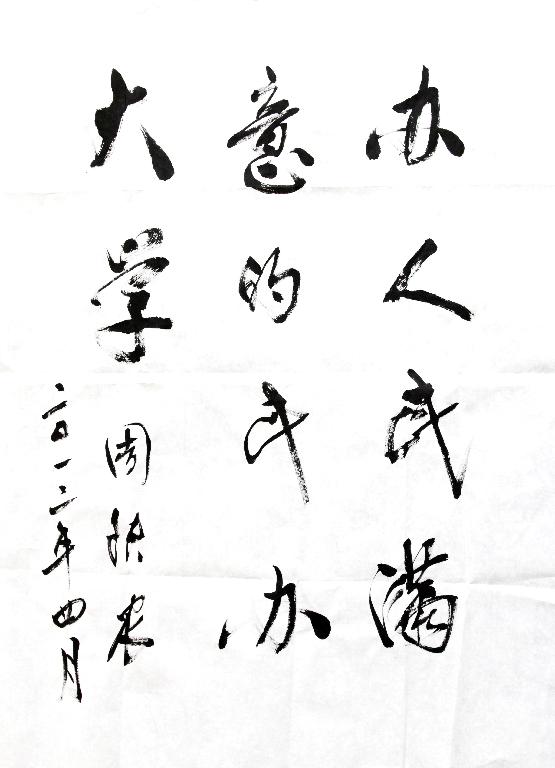 办人民满
意的民办
大学
周铁农
二〇一二年四月